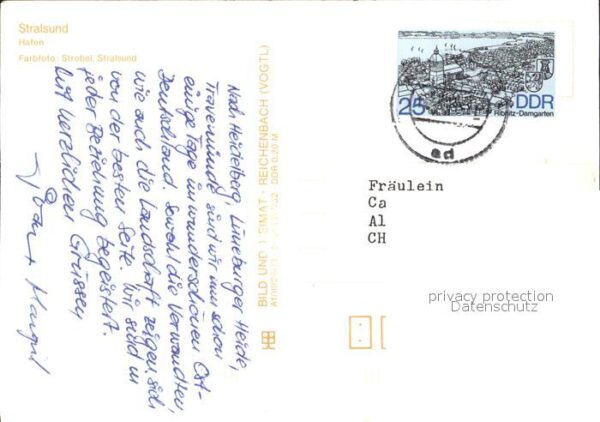 Stralsund
Hafen
Farbfoto: Strobel, Stralsund
Nach Heidelberg, Lüneburger Heide,
Travemünde sind wir nun schon
einige Tage im wunderschönen Ost-
Deutschland. Sowohl die Verwandten,
wie auch die Landschaft zeigen sich
von der besten Seite. Wir sind in
jeder Beziehung begeistert.
Mit herzlichen Grüssen
BILD UND HEIMAT REICHENBACH (VOGTL)
DDR 0,20 M
25
DDR
Ribnitz-Damgarten
Fräulein
Ca
Al
CH
privacy protection
Datenschutz